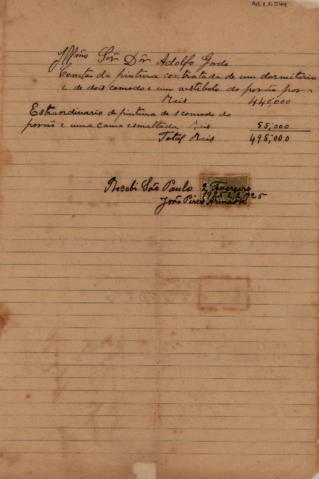 Illmo Snr Dor Adolfo Gordo
da pintura contratada de um dormitorio
e de dois comodo e um vestibolo do porão por
Reis 440,000
Extraordinario de pintura de 1 comodo do
porão e uma cama esmaltada Reis 55,000
Total Reis 495,000
Recebi São Paulo 2 Fevereiro
1925
João Pires